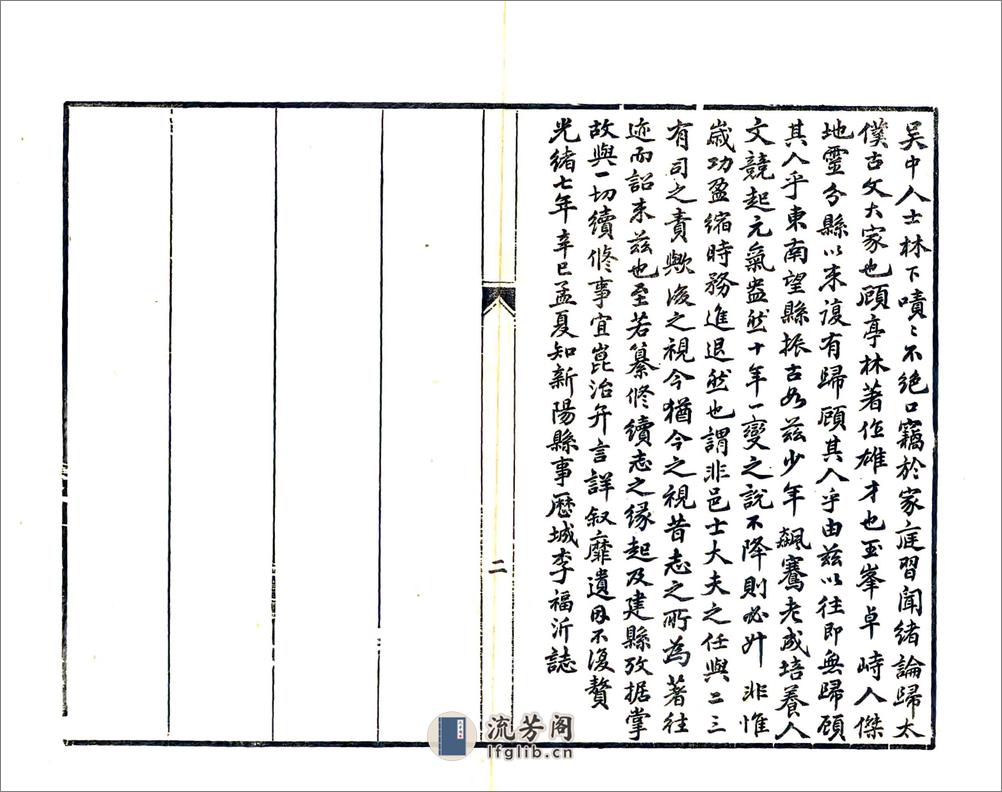 吴中人士林下嘖〻不绝口竊於家庭習聞绪論歸太
僕古文大家也顧亭林著作雄才也玉峯卓峙人傑
地靈分縣以来復有歸顧其人乎由兹以往即無歸顧
其人乎東南望縣振古如兹少年飆騫老成培養人
文競起元氣盎然十年一變之説不降則必升非惟
歲功盈缩時務進退然也謂非邑士大夫之任與二三
有司之責歟後之視今猶今之視昔志之所為著往
迹而詔来兹也至若纂修續志之缘起及建縣攷据掌
故與一切續修事宜崑治弁言詳叙靡遗母不復贅
光绪七年辛巳孟夏知新陽縣事歷城李福沂誌
二
流芳阁
lfglib.cn